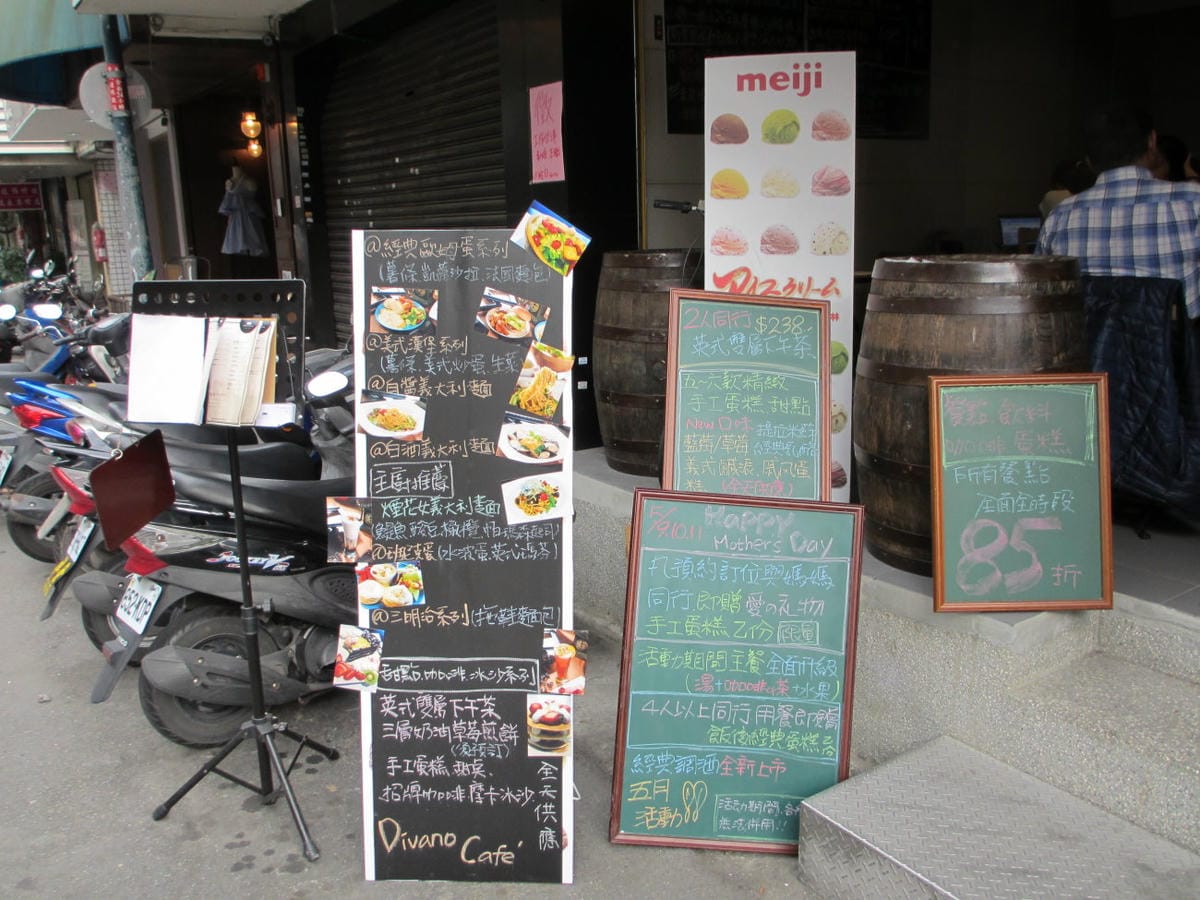 @經典歐姆蛋系列
(薯條.凱薩沙拉.法國麵包)
@美式漢堡系列
(薯條.美式炒蛋.生菜)
@白醬義大利麵
@白酒義大利麵
主廚推薦
煙花女義大利麵
鯷魚.酸豆.橄欖.帕瑪森起司
@班尼蛋(水波蛋.英式瑪芬)
@三明治系列(拖鞋麵包)
甜點.咖啡.冰沙系列
英式雙層下午茶
三層奶油草莓煎餅
(須預訂)
手工蛋糕.甜桌.
招牌咖啡摩卡冰沙.
全天供應
Divano Café
徵
meiji
アイスクリーム
2人同行 $238.
英式雙層下午茶.
五~六款精緻
手工蛋糕.甜點
New口味
藍莓/草莓
美式鹹派.戚風蛋
糕
5/9.10.11 Happy
Mother's Day
凡預約訂位與媽媽
同行即贈愛の礼物
手工蛋糕乙份 限量
活動期間主餐全面升級
(湯+咖啡or茶+水果)
4人以上同行用餐即贈
飯後經典蛋糕
經典調酒全新上市
五月
活動
活動期間.各
無法併用!!
餐點.飲料
咖啡.蛋糕
所有餐點
全面全時段
85折
552-KDB